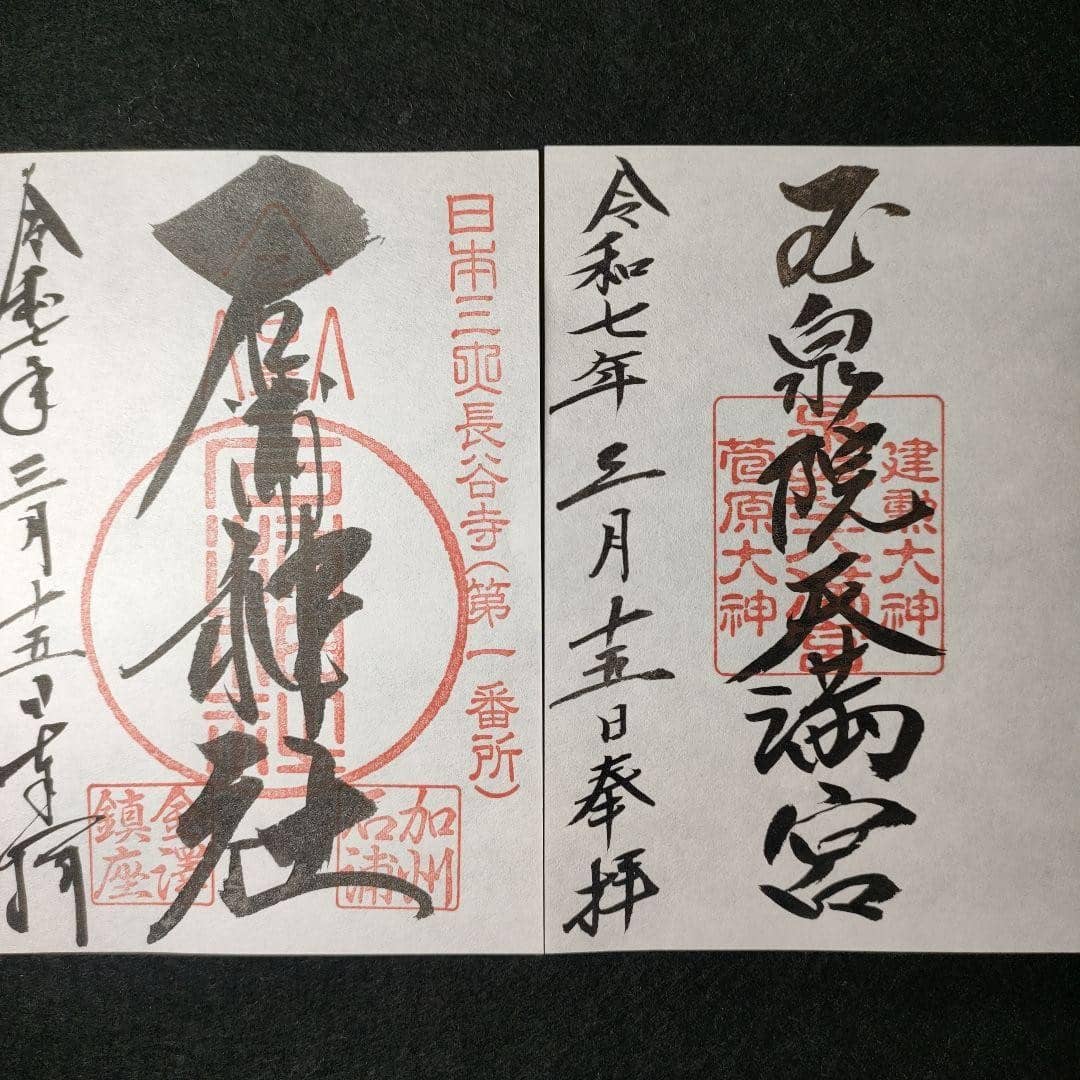 日本三大長谷寺(第一番所)
石浦神社
加州
石浦
金澤
鎮座
令和七年三月十五日奉拝
玉泉院天満宮
建勲大神
菅原大神
令和七年三月十五日奉拝